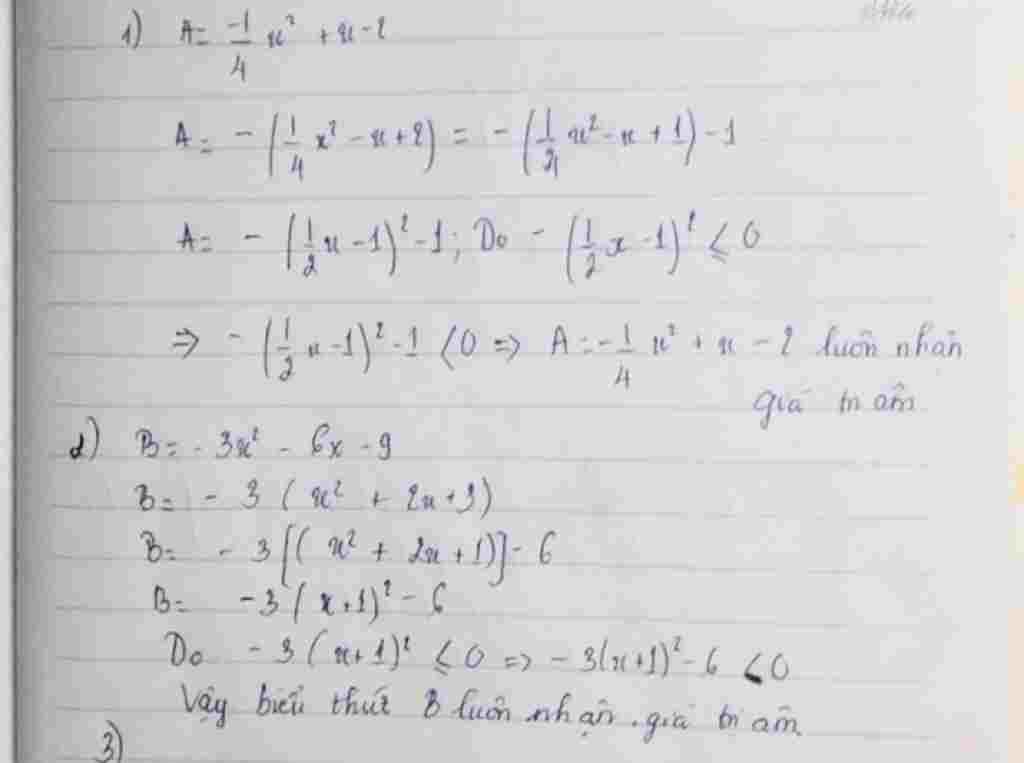 1) A = -1/4 x² + x - 2
A = - (1/4 x² - x + 2) = - (1/4 x² - x + 1) - 1
A = - (1/2 x - 1)² - 1; Do - (1/2 x - 1)² ≤ 0
⇒ - (1/2 x - 1)² - 1 < 0 ⇒ A = -1/4 x² + x - 2 luôn nhận
giá trị âm
2) B = - 3x² - 6x - 9
B = - 3 (x² + 2x + 3)
B = - 3 [(x² + 2x + 1)] - 6
B = -3 (x+1)² - 6
Do - 3 (x+1)² ≤ 0 ⇒ - 3(x+1)² - 6 < 0
Vậy biểu thức B luôn nhận giá trị âm.
3)